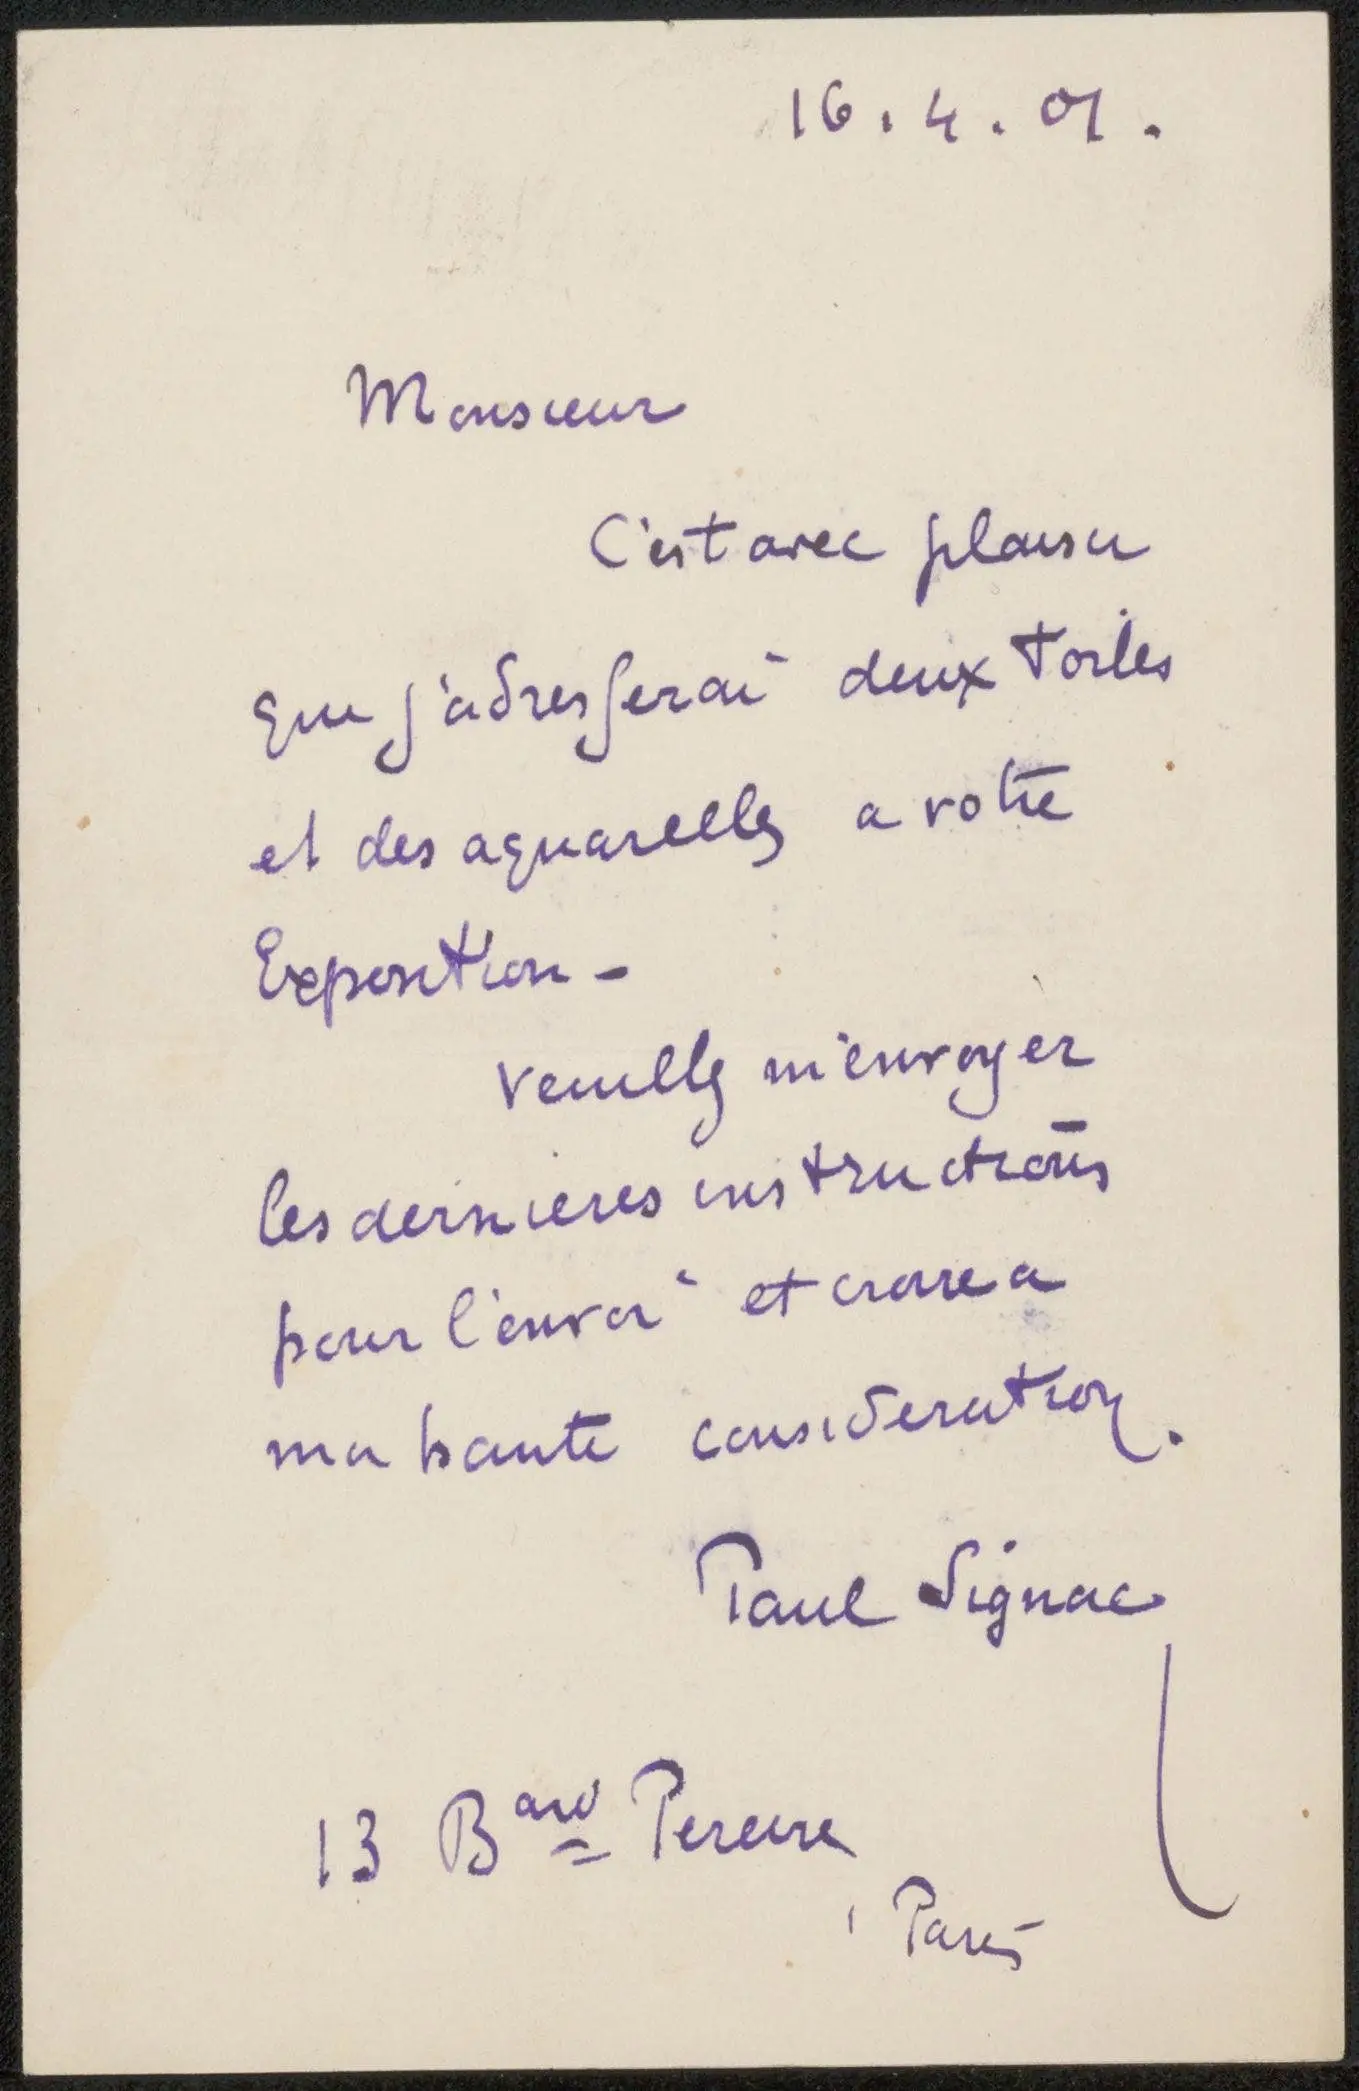 16.4.01.
Monsieur
C'est avec plaisir
que j'adresserai deux toiles
et des aquarelles a votre
Exposition -
Veuillez m'envoyer
les dernieres instructions
pour l'envoi et croire a
ma haute consideration.
Paul Signac
13 Bard Pereire
Paris